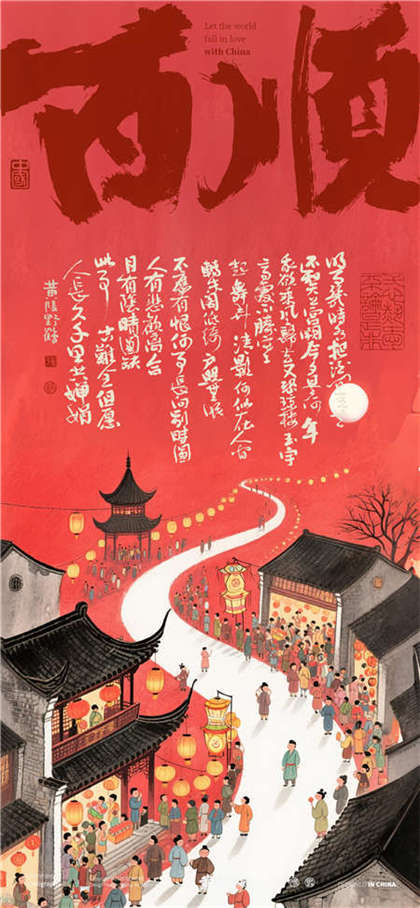 Let the world
fall in love
with China
顺
中國
明月几时有把酒问青天
不知天上宫阙今夕是何年
我欲乘风归去又恐琼楼玉宇
高处不胜寒
起舞弄清影何似在人间
转朱阁低绮户照无眠
不应有恨何事长向别时圆
人有悲欢离合
月有阴晴圆缺
此事古难全但愿
人长久千里共婵娟
黄陵野鹤
IN CHINA